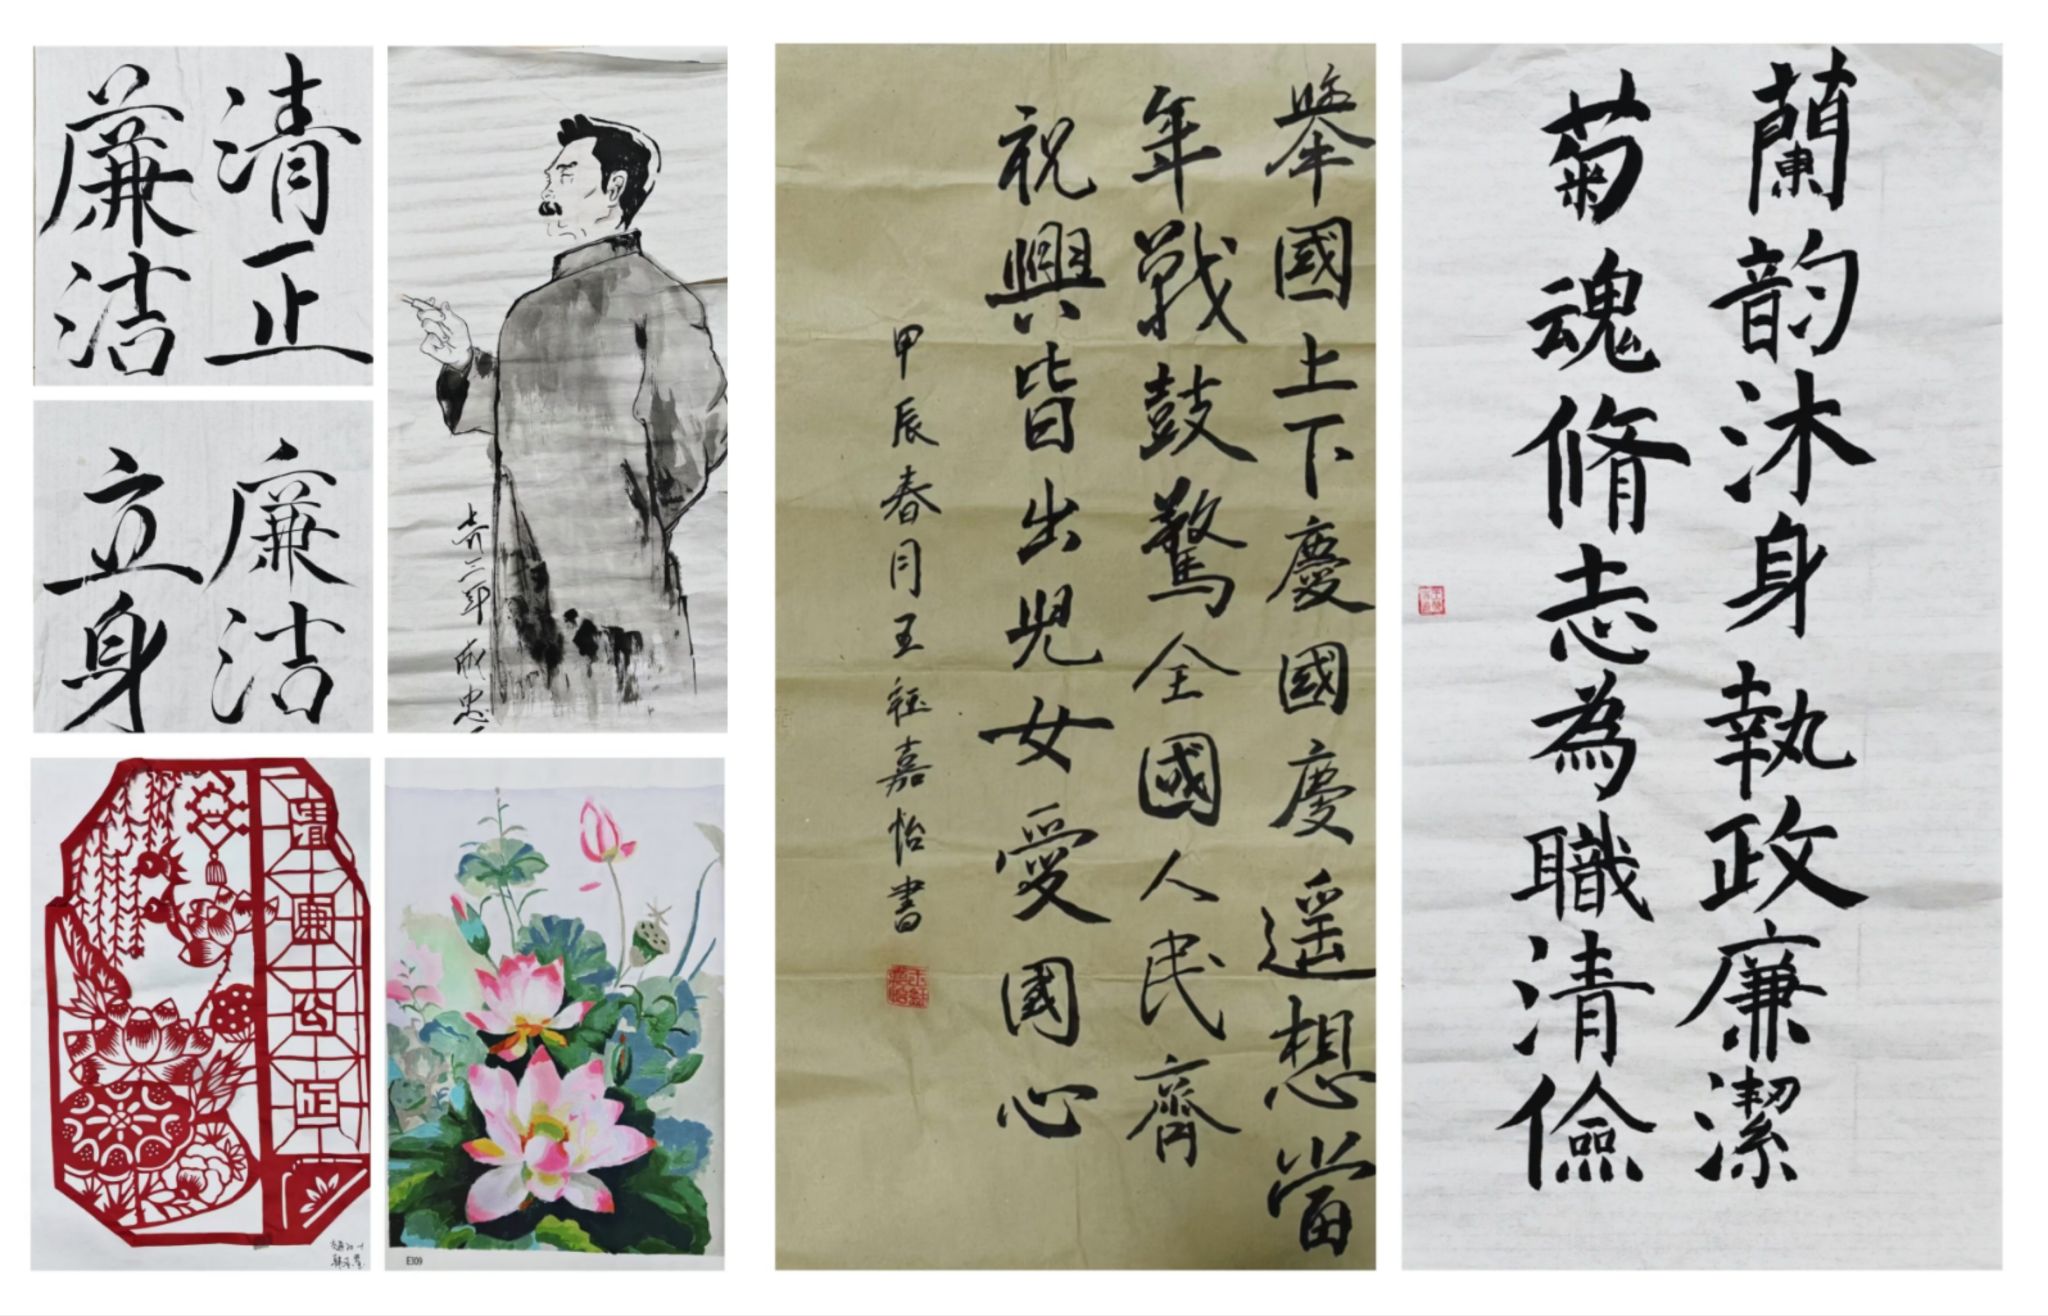 清正
廉洁
廉洁
立身
年 成忠
清廉公正
E309
舉國上下慶國慶遥想當
年戰鼓驚全國人民齊
祝興皆出兒女愛國心
甲辰春月王嘉怡書
蘭韵沐身執政廉潔
菊魂脩志為職清儉